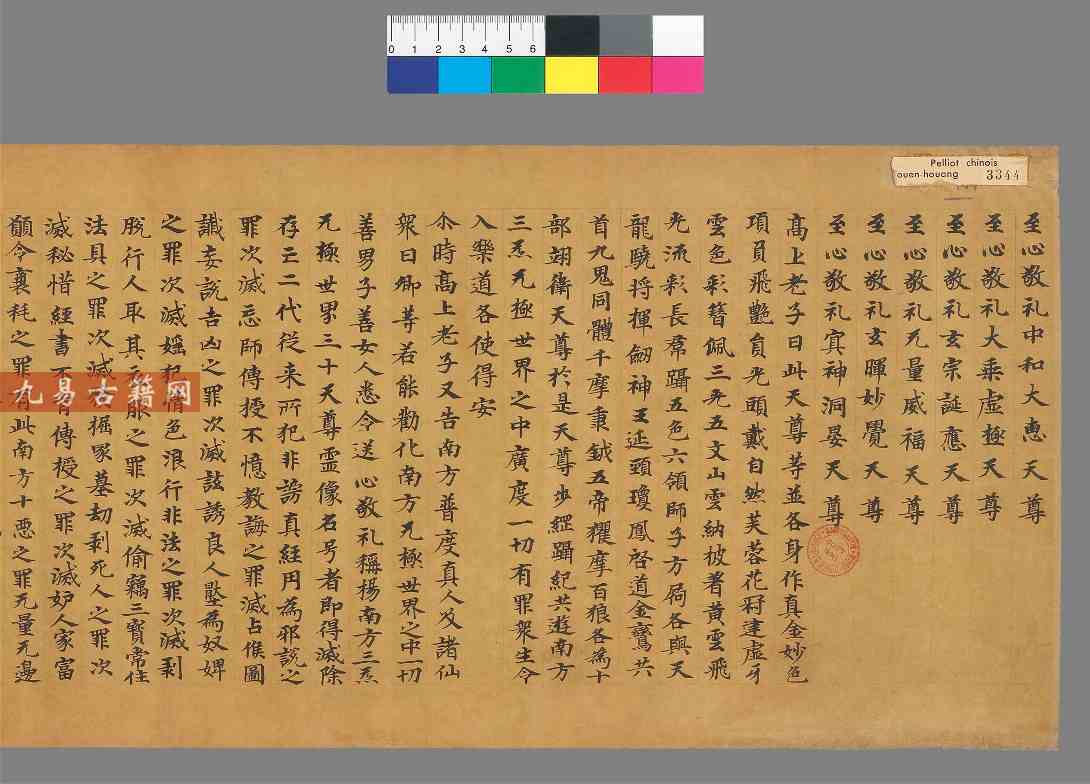 0 1 2 3 4 5 6
Pelliot chinois
ouen-houang 3344
至心敬礼中和大恵天尊
至心敬礼大乘虚極天尊
至心敬礼玄宗誕應天尊
至心敬礼无量威福天尊
至心敬礼玄暉妙覺天尊
至心敬礼㝠神洞晏天尊
高上老子曰此天尊等並各身作真金妙色
項負飛艷負光頭戴自然芙蓉花冠建虚
雲色彩簪佩三光五文山雲納被著黄雲飛
光流彩長帬躡五色六領師子方扄各與天
龍驍将揮劒神王延頸瓊鳳啓道金鸞共
首九鬼同體千摩秉鉞五帝耀摩百狼各為十
部翊衛天尊於是天尊步䌸躡紀共遊南方
三炁无極世界之中廣度一切有罪衆生令
入樂道各使得安
尒時高上老子又告南方普度真人及諸仙
衆曰卿等若能勸化南方无極世界之中一切
善男子善女人悉令送心敬礼稱楊南方三炁
无極世界三十天尊靈像名号者即得滅除
存亡二代従来所犯非謗真経円為邪説之
罪次滅忘師傳授不憶教誨之罪滅占候圖
讖妄説吉凶之罪次滅詃誘良人壓為奴婢
之罪次滅婬犯情色浪行非法之罪次滅剥
脱行人取其衣服之罪次滅偷竊三寳常住
法具之罪次滅掘冢墓劫剥死人之罪次
滅秘惜經書不肯傳授之罪次滅妒人家富
顚令襄耗之罪有此南方十悪之罪无量无邊
九易古籍网